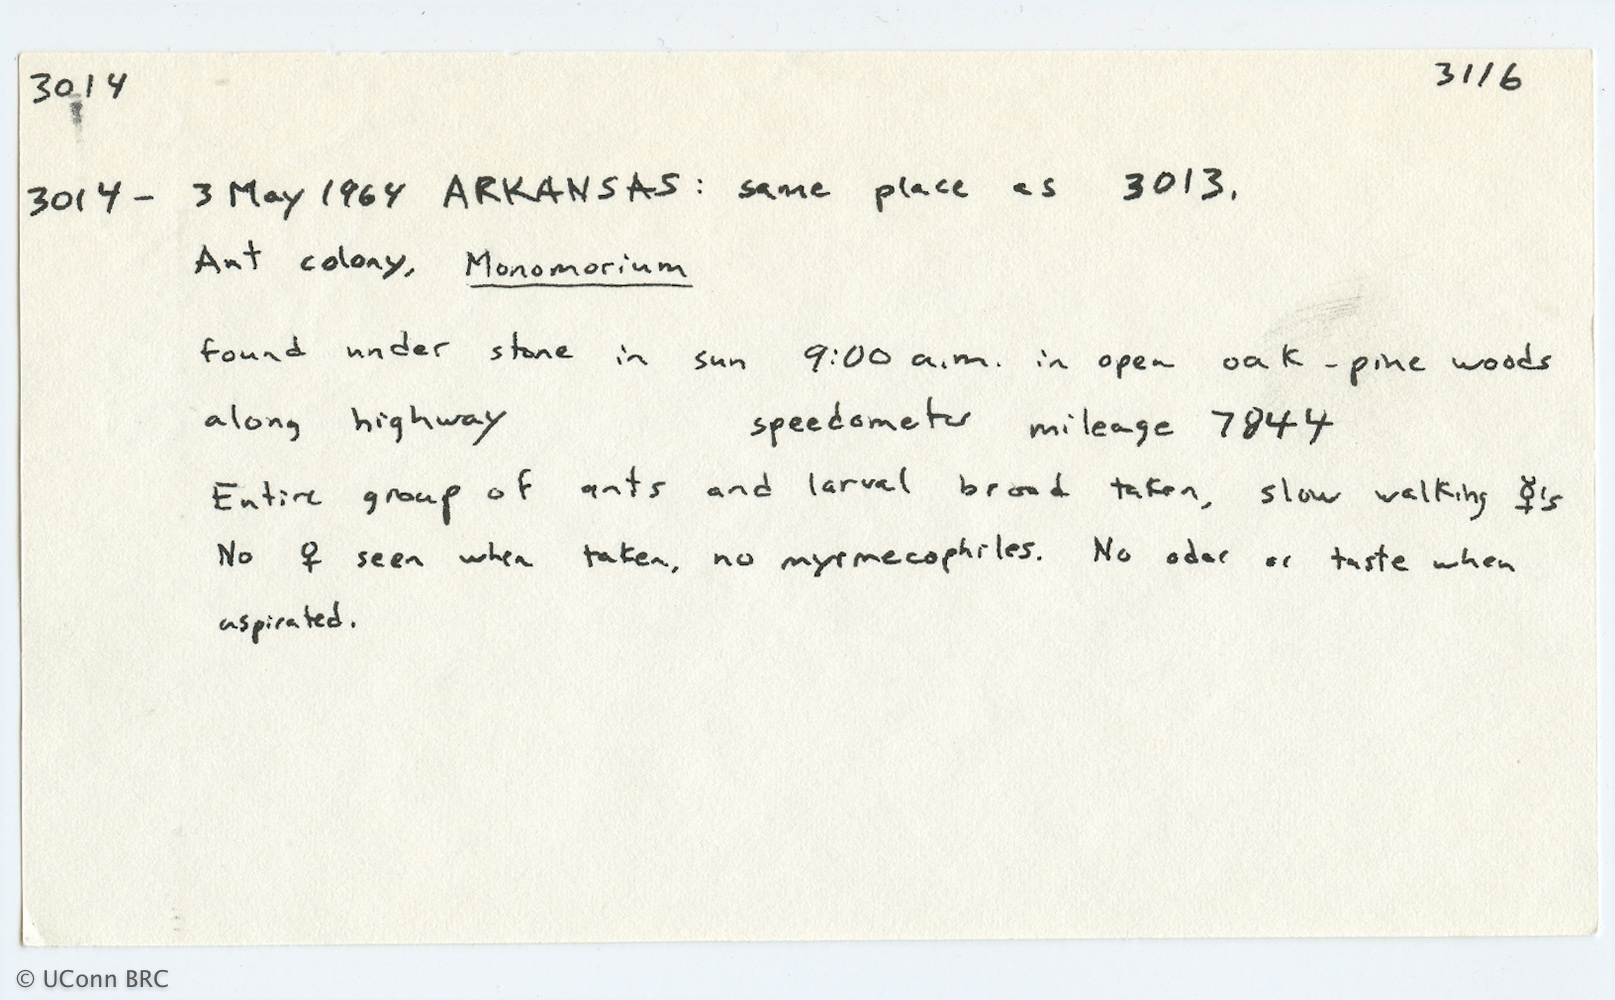 3014 3116
3014 - 3 May 1964 ARKANSAS: same place as 3013.
Ant colony, Monomorium
found under stone in sun 9:00 a.m. in open oak-pine woods
along highway speedometer mileage 7844
Entire group of ants and larval brood taken, slow walking ☿'s
No ♀ seen when taken, no myrmecophiles. No odor or taste when
aspirated.
© UConn BRC